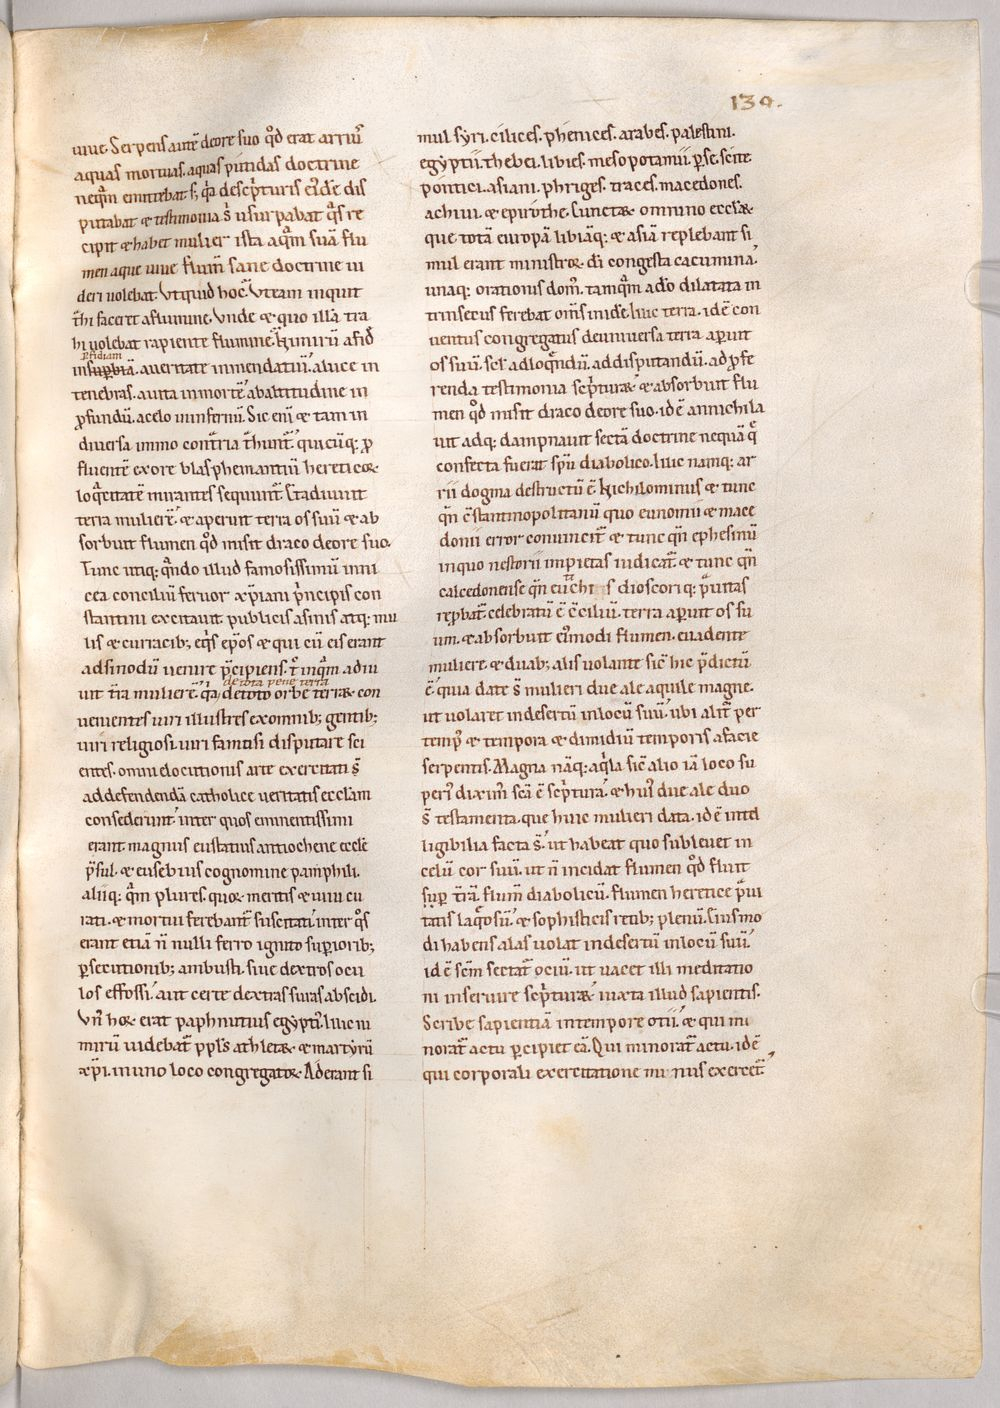 139.
uiue. Serpens aut̄ de ore suo qd̄ erat arriuˢ
aquas mortuas. aquas putidas doctrine
neq̄m emittebat s; q̄a de scͥpturis eīde dis
putabat & testimonia s̄ usurpabat q̄s re
cipit & habet mulier ista aq̄m suā flu
men aque uiue flum̄ sane doctrine ui
deri uolebat. Vtquid hoc. Vt eam inquit
t̄hi faceret a flumine. Vnde & quo illā tra
hi uolebat rapiente flumine. Nimirū a fid̄
p̄fidiam
in superbiā. a ueritate in mendatiū. a luce in
tenebras. a uita in mortē. ab altitudine in
ꝓfundū. a celo in infernū. Sic eni & tam in
diuersa immo contͬria t̄hunt̄ quicūq; ꝓ
fluentē ex ore blasphemantiū hereticoꝝ
loq̄citatē mirantes sequunt̄. Et adiuuit
terra mulierē. & aperuit terra os suū & ab
sorbuit flumen qd̄ misit draco de ore suo.
Tunc utiq; q̄ndo illud famosissimū inni
cea conciliū feruor xp̄iani pͥncipis con
stantini excitauit. publicis asinis atq; mu
lis & curiacib; eq̄s ep̄os & qui cū eis erant
ad sinodū uenire p̄cipiens. t̄ inq̄m adiu
uit t̄ra mulierē. q̄a de toto orbe terraꝝ con
de tota pene terra
uenientes uiri illustres ex omnib; gentib;
uiri religiosi. uiri famosi disputare sci
entes. omni elocutionis arte exercitati s̄
ad defendendā catholice ueritatis eccl̄iam
consederunt. inter quos eminentissimi
erant magnus eustatius antiochene eccl̄e
p̄sul. & eusebius cognomine pamphili.
aliiq; q̄m plures. quoꝝ meritis & uiui cu
rati. & mortui ferebant̄ suscitati. inter q̄s
erant etiā n̄ nulli ferro ignito superiorib;
p̄secutionib; ambusti. siue dextros ocu
los effossi. aut certe dextras suras abscidi.
Vn̄ hoꝝ erat paphnutius egyptiˢ. huic ui
mirū uidebat̄ ppl̄s athletaꝝ & martyrū
xp̄i. in uno loco congregatoꝝ. Aderant si
mul syri. cilices. phenices. arabes. palestini.
egyptii. thebei. libies. mesopotamii. p̄se. scite.
pontici. asiani. phriges. traces. macedones.
achiui. & epirothe. Cunctaꝝ omnino eccl̄iaꝝ
que totā europā libiāq; & asiā replebant si
mul erant ministroꝝ. dī congesta cacumina.
unaq; orationis dom̄. tamq̄m a dō dilatata in
trinsecus ferebat om̄s in idē. huic terra. id ē con
uentus congregatus de uniuersa terra aperuit
os suū. scͥ ad loq̄ndū. ad disputandū. ad ꝓfe
renda testimonia scͥpturaꝝ & absorbuit flu
men qd̄ misit draco de ore suo. id ē annichila
uit adq; dampnauit sectā doctrine nequā q̄
confecta fuerat sp̄u diabolico. huic namq; ar
rii dogma destructū ē. Nichilominus & tunc
q̄n c̄stantinopolitanū quo eunomii & mace
donii error conuincit̄ & tunc q̄n ephesinū
in quo nestorii impietas iudicat̄ & tunc q̄n
calcedonense q̄n eutichi s dioscoriq; pͬuitas
rep̄bat̄ celebratū ē c̄ciliū. terra aperuit os su
um. & absorbuit eiˢmodi flumen. euadente
muliere. & duab; alis uolante sic̄ hic p̄dictū
ē. quia date s̄ mulieri due ale aquile magne.
ut uolaret in desertū in locū suū. ubi alit̄ per
tempˢ & tempora & dimidiū temporis a facie
serpentis. Magna nāq; aq̄la sic̄ alio iā loco su
periˢ diximˢ scā ē scͥptura. & huiˢ due ale duo
s̄ testamenta. que huic mulieri data. id ē intel
ligibilia facta s̄. ut habeat quo subleuet in
celū cor suū. ut n̄ incidat flumen qd̄ fluit
sup̄ t̄rā. flum̄ diabolicū. flumen heretice pͬui
tatis laq̄osū. & sophisticis retib; plenū. Eiusmo
di habens alas uolat in desertū in locū suū.
id ē scm̄ sectat̄ ociū. ut uacet illi meditatio
ni inseruire scͥpturaꝝ iuxta illud sapientis.
Scribe sapientiā in tempore otii. & qui mi
norat̄ actu p̄cipiet eā. Qui minorat̄ actu. id ē
qui corporali exercitatione minus exercet̄.